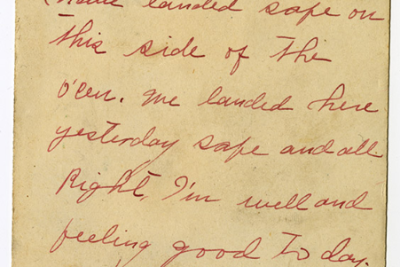 landed safe on
this side of the
o'cen. we landed here
yesterday safe and all
Right, I'm well and
feeling good To day.